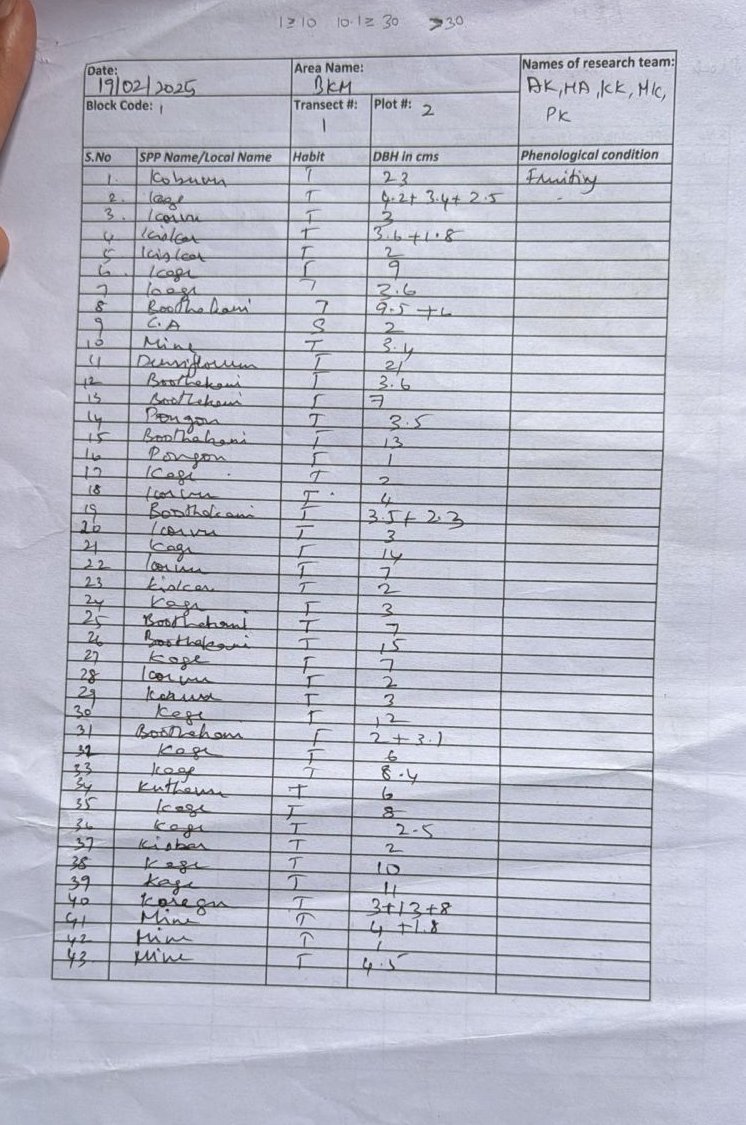 1≥10 10.1≥30 >30
Date: 19/02/2025 Area Name: BKM Names of research team: AK, HA, KK, MK, PK
Block Code: 1 Transect #: 1 Plot #: 2
S.No SPP Name/Local Name Habit DBH in cms Phenological condition
1. Koburu T 23 Fruiting
2. Kage T 4.2+ 3.4+ 2.5 -
3. Korivu T 3
4 Kiskar T 3.6 +1.8
5 Kiskar T 2
6. Kage T 9
7 Kage T 3.6
8 Boothakani T 9.5 +6
9 C.A S 2
10 Mine T 3.4
11 Densiflorum T 21
12 Boothakani T 3.6
13 Boothakani T 7
14 Pongon T 3.5
15 Boothakani T 13
16 Pongon T 1
17 Kage T 2
18 T 4
19 Boothakani T 3.5+ 2.3
20 T 3
21 Kage T 14
22 T 7
23 Kiskar T 2
24 Kage T 3
25 Boothakani T 7
26 Boothakani T 15
27 Kage T 7
28 T 2
29 T 3
30 Kage T 12
31 Boothakani T 2 + 3.1
32 Kage T 6
33 Kage T 8.4
34 T 6
35 Kage T 8
36 Kage T 2.5
37 Kiskar T 2
38 Kage T 10
39 Kage T 11
40 T 3+13+8
41 Mine T 4 +1.8
42 Mine T 1
43 Mine T 4.5